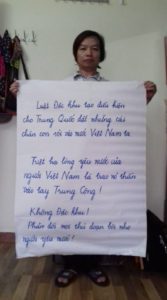 Luật Đặc Khu tạo điều kiện
cho Trung Quốc đặt những cái
chân con rồi vào nước Việt Nam ta
Triệt hạ lòng yêu nước của
người Việt Nam là trao nó thân
vào tay Trung Cộng!
Không Đặc khu!
Phản đối mọi thủ đoạn bôi nhọ
người yêu nước!